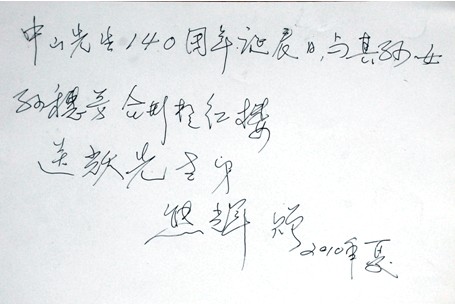 中山先生140周年诞辰日，与其孙女
孙穗芳合影於红楼
送 先生
辉 赠 2010年夏